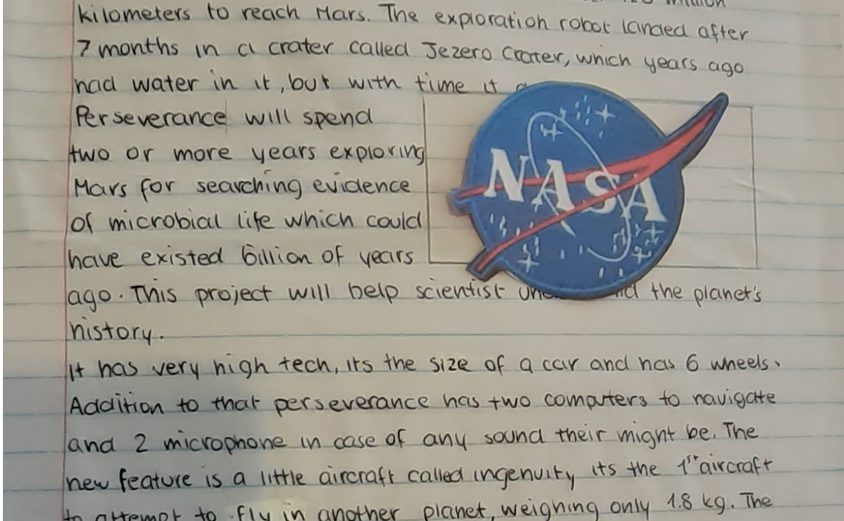 million
kilometers to reach Mars. The exploration robot landed after
7 months in a crater called Jezero Crater, which years ago
had water in it, but with time it
Perseverance will spend
two or more years exploring
Mars for searching evidence
of microbial life which could
have existed billion of years
NASA
ago. This project will help scientist the planet's
history.
It has very high tech, its the size of a car and has 6 wheels.
Addition to that perseverance has two computers to navigate
and 2 microphone in case of any sound their might be. The
new feature is a little aircraft called ingenuity its the 1st aircraft
to attempt to fly in another planet, weighing only 1.8 kg. The